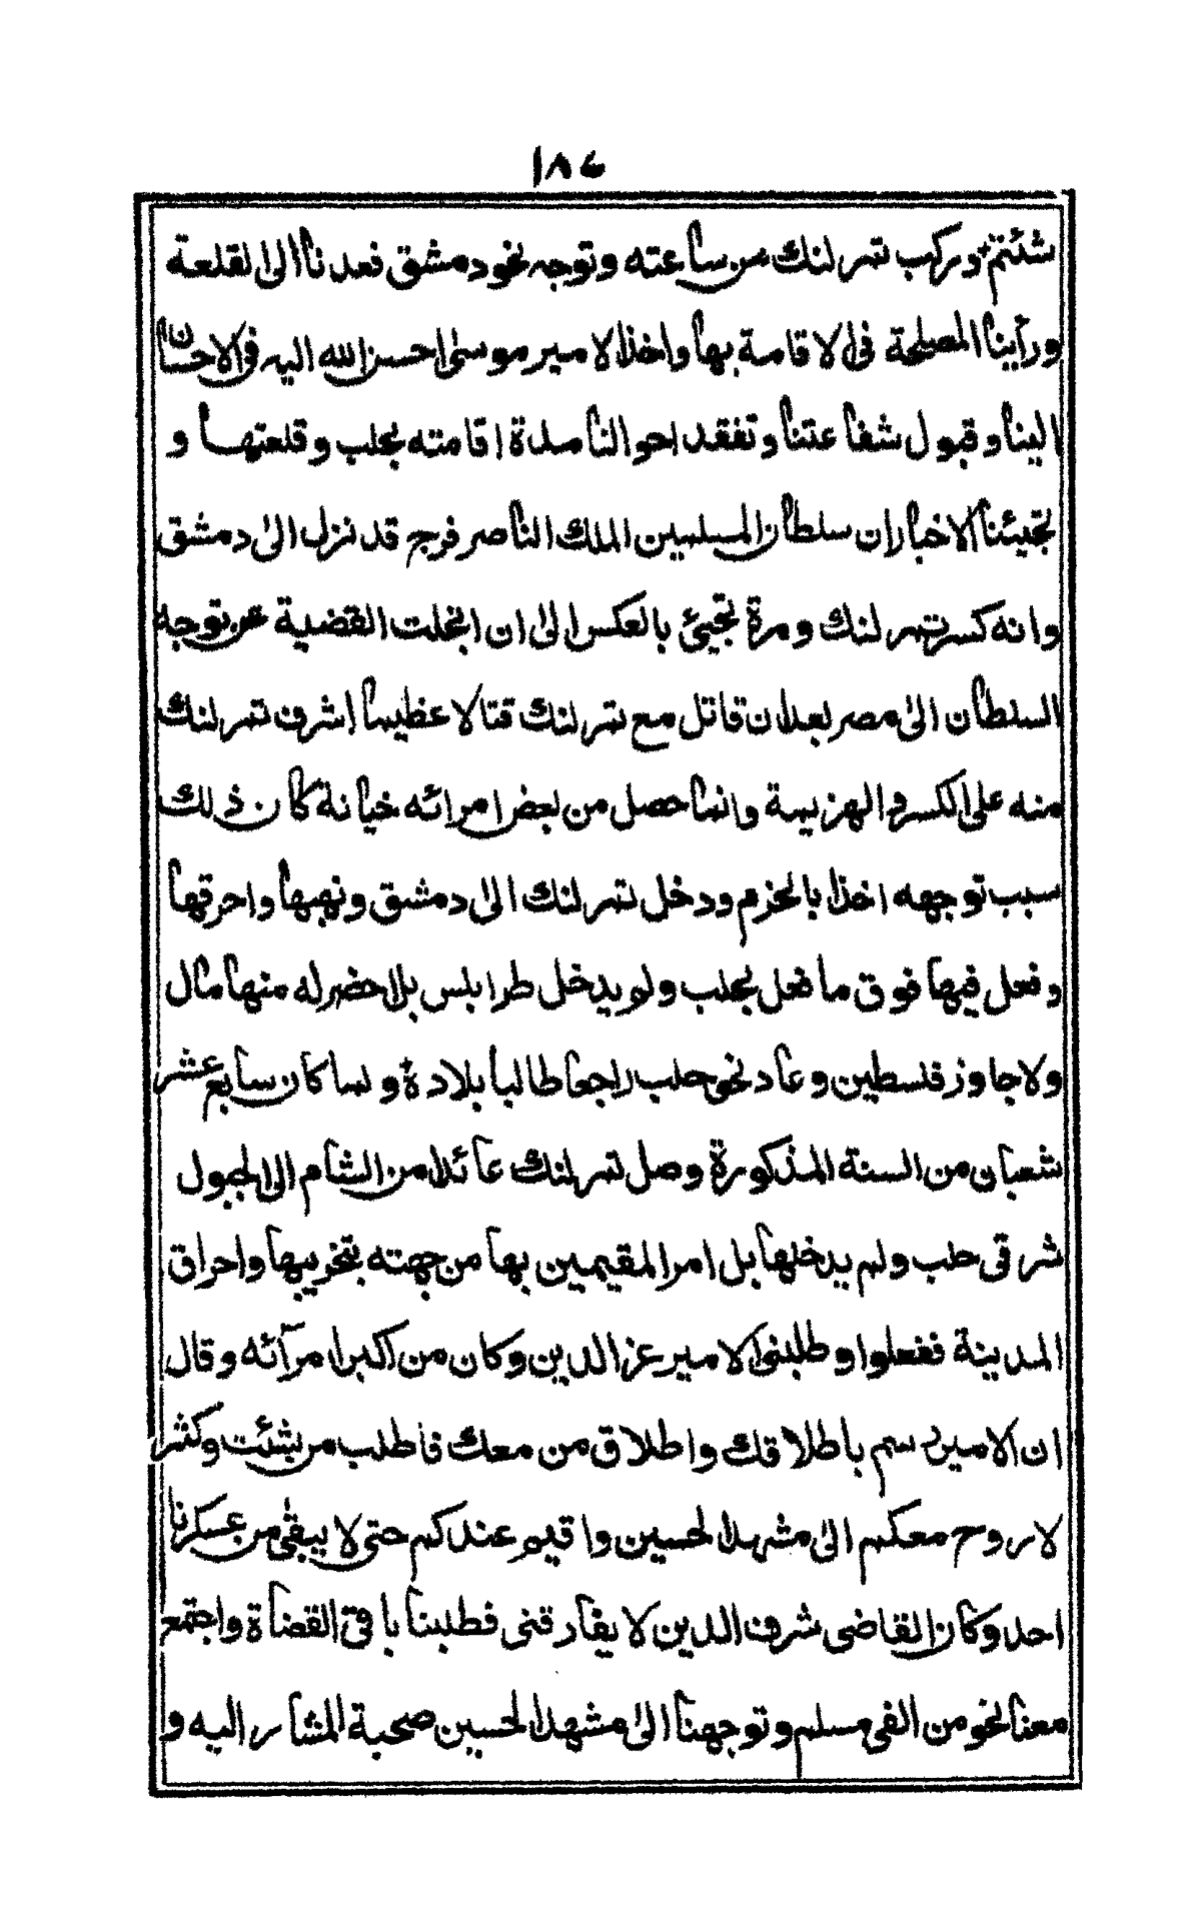 ١٨٤
شئتم وركب تمرلنك من ساعته وتوجه نحو دمشق فعدنا الى القلعة
ورأينا المصلحة فى الاقامة بها واخذ الامير موسى احسن الله اليه فى الاحسان
الينا وقبول شفاعتنا وتفقد احوالنا مدة اقامته بحلب وقلعتها و
تجيئنا الاخبار ان سلطان المسلمين الملك الناصر فرج قد نزل الى دمشق
وانه كسر تمرلنك ومرة تجيئ بالعكس الى ان انجلت القضية عن توجه
السلطان الى مصر بعد ان قاتل مع تمرلنك قتالا عظيما اشرف تمرلنك
منه على الكسر والهزيمة وانما حصل من بعض امرائه خيانة كان ذلك
سبب توجهه اخذا بالحزم ودخل تمرلنك الى دمشق ونهبها واحرقها
وفعل فيها فوق ما فعل بحلب ولم يدخل طرابلس بل احضر له منها مال
ولا جاوز فلسطين وعاد نحو حلب راجعا طالبا بلاده ولما كان سابع عشر
شعبان من السنة المذكورة وصل تمرلنك عائدا من الشام الى الجبول
شرقى حلب ولم يدخلها بل امر المقيمين بها من جهته بتخريبها واحراق
المدينة ففعلوا وطلبنى الامير عز الدين وكان من اكبر امرآئه وقال
ان الامير رسم باطلاقك واطلاق من معك فاطلب من شئت وكثر
لاروح معكم الى مشهد الحسين واقيم عندكم حتى لا يبقى من عسكرنا
احد وكان القاضى شرف الدين لا يفارقنى فطلبنا باقى القضاة واجتمع
معنا نحو من الفى مسلم وتوجهنا الى مشهد الحسين صحبة المشار اليه و